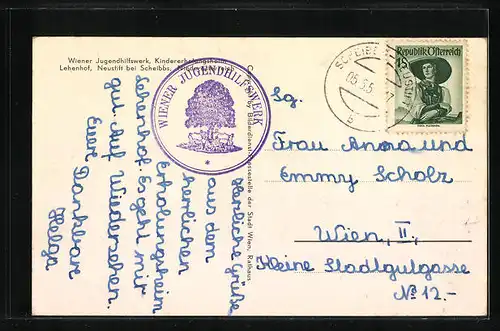 Wiener Jugendhilfswerk, Kindererholungsheim
Lehenhof, Neustift bei Scheibbs, Niederösterreich
WIENER JUGENDHILFSWERK
*
Herzliche Grüße
aus dem
herrlichen
Erholungsheim
Lehenhof. Es geht mir
gut. Auf Wiedersehen.
Eure Dankbare
Helga
Bilderdienst der Stadt Wien, Rathaus
SCHEIBBS
b
Republik Österreich
1S
Sg.
Frau Anna und
Emmy Scholz
Wien, II.,
Kleine Stadtgutgasse
No 12.-